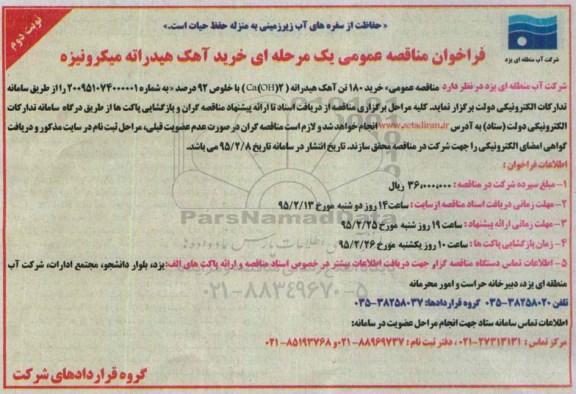 نوبت دوم
« حفاظت از سفره های آب زیرزمینی به منزله حفظ حیات است.»
شرکت آب منطقه ای یزد
فراخوان مناقصه عمومی یک مرحله ای خرید آهک هیدراته میکرونیزه
شرکت آب منطقه ای یزد در نظر دارد مناقصه عمومی» خرید ۱۸۰ تن آهک هیدراته ( Ca(OH)۲) با خلوص ۹۲ درصد »به شماره ۲۰۰۹۵۱۰۷۴۰۰۰۰۰۱ را از طریق سامانه
تدارکات الکترونیکی دولت برگزار نماید. کلیه مراحل برگزاری مناقصه از دریافت اسناد تا ارائه پیشنهاد مناقصه گران و بازگشایی پاکت ها از طریق درگاه سامانه تدارکات
الکترونیکی دولت (ستاد) به آدرس www.setadiran.ir انجام خواهد شد و لازم است مناقصه گران در صورت عدم عضویت قبلی، مراحل ثبت نام در سایت مذکور و دریافت
گواهی امضای الکترونیکی را جهت شرکت در مناقصه محقق سازند. تاریخ انتشار در سامانه تاریخ ۹۵/۲/۸ می باشد.
اطلاعات فراخوان :
۱- مبلغ سپرده شرکت در مناقصه : ۳۶۰،۰۰۰،۰۰۰ ریال
۲- مهلت زمانی دریافت اسناد مناقصه ازسایت : ساعت۱۴ روز دو شنبه مورخ ۹۵/۲/۱۳
۳- مهلت زمانی ارائه پیشنهاد : ساعت ۱۹ روز شنبه مورخ ۹۵/۲/۲۵
۴- زمان بازگشایی پاکت ها : ساعت ۱۰ روز یکشنبه مورخ ۹۵/۲/۲۶
۵- اطلاعات تماس دستگاه مناقصه گزار جهت دریافت اطلاعات بیشتر در خصوص اسناد مناقصه و ارائه پاکت های الف:یزد، بلوار دانشجو، مجتمع ادارات، شرکت آب
منطقه ای یزد، دبیرخانه حراست و امور محرمانه
تلفن ۳۸۲۵۸۰۲۰-۰۳۵ گروه قراردادها: ۳۸۲۵۸۰۳۷-۰۳۵
اطلاعات تماس سامانه ستاد جهت انجام مراحل عضویت در سامانه:
مرکز تماس : ۲۷۳۱۳۱۳۱-۰۲۱ ، دفتر ثبت نام : ۸۸۹۶۹۷۳۷-۰۲۱و ۸۵۱۹۳۷۶۸-۰۲۱
گروه قراردادهای شرکت
ParsNamadData
۰۲۱-۸۸۳۴۹۶۷۰-۵